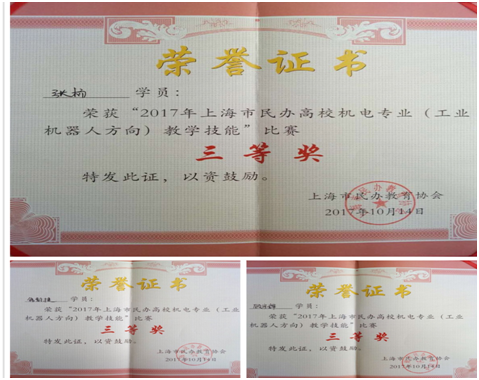 荣誉证书
张楠 学员：
荣获“2017年上海市民办高校机电专业（工业
机器人方向）教学技能”比赛
三等奖
特发此证，以资鼓励。
上海市民办教育协会
2017年10月14日
荣誉证书
学员：
荣获“2017年上海市民办高校机电专业（工业
机器人方向）教学技能”比赛
三等奖
特发此证，以资鼓励。
上海市民办教育协会
2017年10月14日
荣誉证书
学员：
荣获“2017年上海市民办高校机电专业（工业
机器人方向）教学技能”比赛
三等奖
特发此证，以资鼓励。
上海市民办教育协会
2017年10月14日